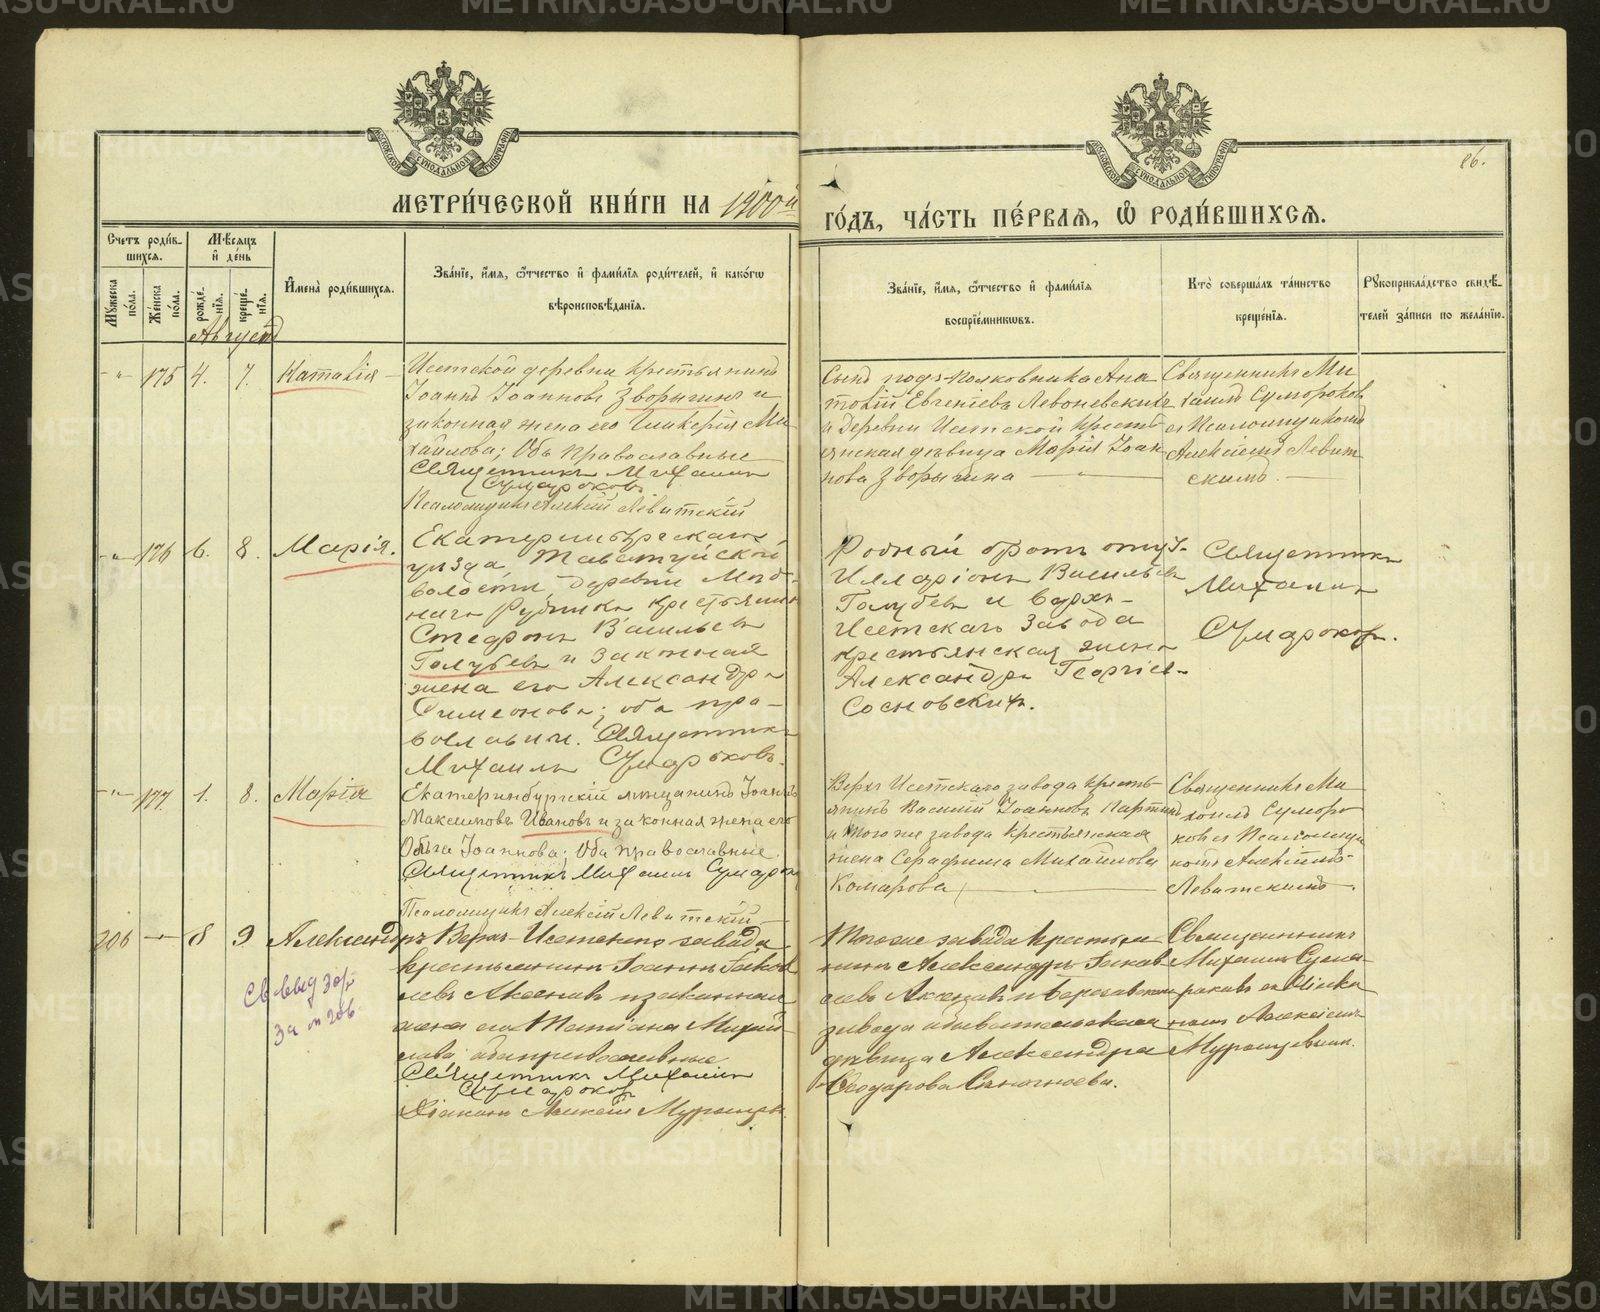 МЕТРИ́ЧЕСКОЙ КНИ́ГИ НА 1900й
ГО́ДЪ, ЧА́СТЬ ПЕ́РВАѦ, Ѽ РОДИ́ВШИХСѦ.
26.
Счетъ роди́в-
шихсѧ.
Мѣсѧцъ
и҆ де́нь
Мꙋжеска по́ла.
Же́нска по́ла.
рожде́-
нїѧ.
креще́-
нїѧ.
И҆мена̀ роди́вшихсѧ.
Зва́нїе, и҆́мѧ, ѻ҆́тчество и҆ фами́лїѧ роди́телей, и҆ како́гѡ
вѣроисповѣ́данїѧ.
Зва́нїе, и҆́мѧ, ѻ҆́тчество и҆ фами́лїѧ
воспрїе́мникѡвъ.
Кто̀ соверша́лъ та́инство
креще́нїѧ.
Рꙋкоприкла́дство свидѣ́-
телей за́писи по жела́нїю.
Августъ
-"- 175 4. 7. Наталiя
Исетской деревни крестьянинъ
Iоаннъ Iоанновъ Зворыгинъ и
законная жена его Гликерiя Ми
хайлова; Оба православные
Священникъ Михаилъ
Сумароковъ
Псаломщикъ Алексiй Левитскiй
Сынъ подъ-полковника Ана
толiй Евгенiевъ Левоневскихъ
и деревни Исетской крестъ
янская девица Марiя Iоан
нова Зворыгина
Священникъ Ми
хаилъ Сумароков
съ Псаломщикомъ
Алексiемъ Левит
скимъ.
-"- 176 6. 8. Марiя.
Екатеринбургскаго
уезда, Таватуйской
волости деревни
Рудника крестьянин
Стефанъ Васильевъ
Голубевъ и законная
жена его Александра
Симеонова; оба пра-
вославн. Священникъ
Михаилъ Сумароковъ.
Родный братъ отца-
Илларiонъ Васильевъ
Голубевъ и Верхъ-
Исетскаго завода
крестьянская жена
Александра Георгiев-
Сосновскихъ.
Священникъ
Михаилъ
Сумароков.
-"- 177 1. 8. Марiя
Екатеринбургскiй мещанинъ Iоаннъ
Максимовъ Ивановъ и законная жена его
Ольга Iоаннова; Оба православные.
Священникъ Михаилъ Сумароков
Псаломщикъ Алексiй Левитскiй
Верхъ Исетскаго завода кресть
янинъ Василiй Iоанновъ Партинъ
и тогоже завода крестьянская
жена Серафима Михайлова
Комарова
Священникъ Ми
хаилъ Сумаро
ковъ съ Псаломщи
комъ Алексiемъ-
Левитскимъ.
206 — 8 9 Александръ
Верхъ-Исетскаго завода
крестьянинъ Iоаннъ Iаков
левъ Аксеновъ и законная
жена его Татiана Михай
лова оба православные
Священникъ Михаилъ
Сумароков
Дiаконъ Алексiй Мурашев.
Тогоже завода крестья
нинъ Александръ Iаков
левъ Аксеновъ и Березовскаго
завода обывательская
девица Александра
Феодорова
Священникъ
Михаилъ Сума-
роковъ съ Дiако
номъ Алексiемъ
Мурашевымъ.
Св выд
за № 206.